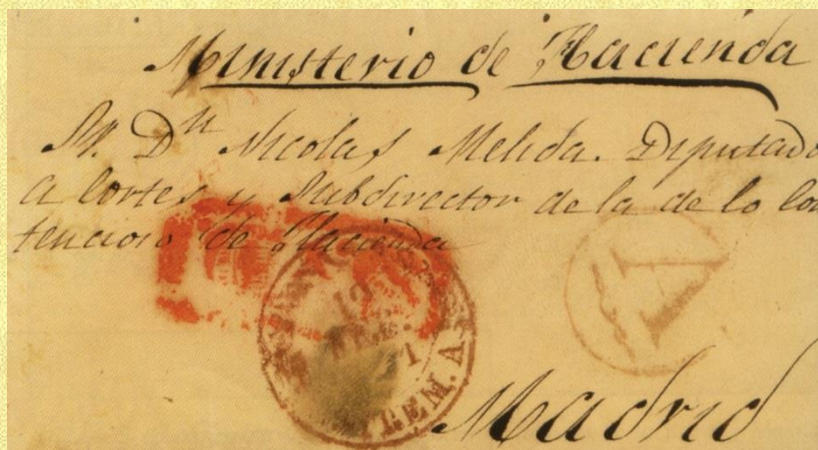 Ministerio de Hacienda
Sr. Dn Nicolas Melida. Diputado
a Cortes y Subdirector de la de lo Con
tencioso de Hacienda
A
EXTREM. A.
Madrid